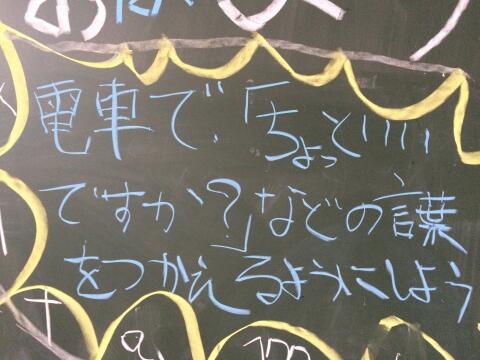 電車で、「ちょっといい
ですか？」などの言葉
をつかえるようにしよう